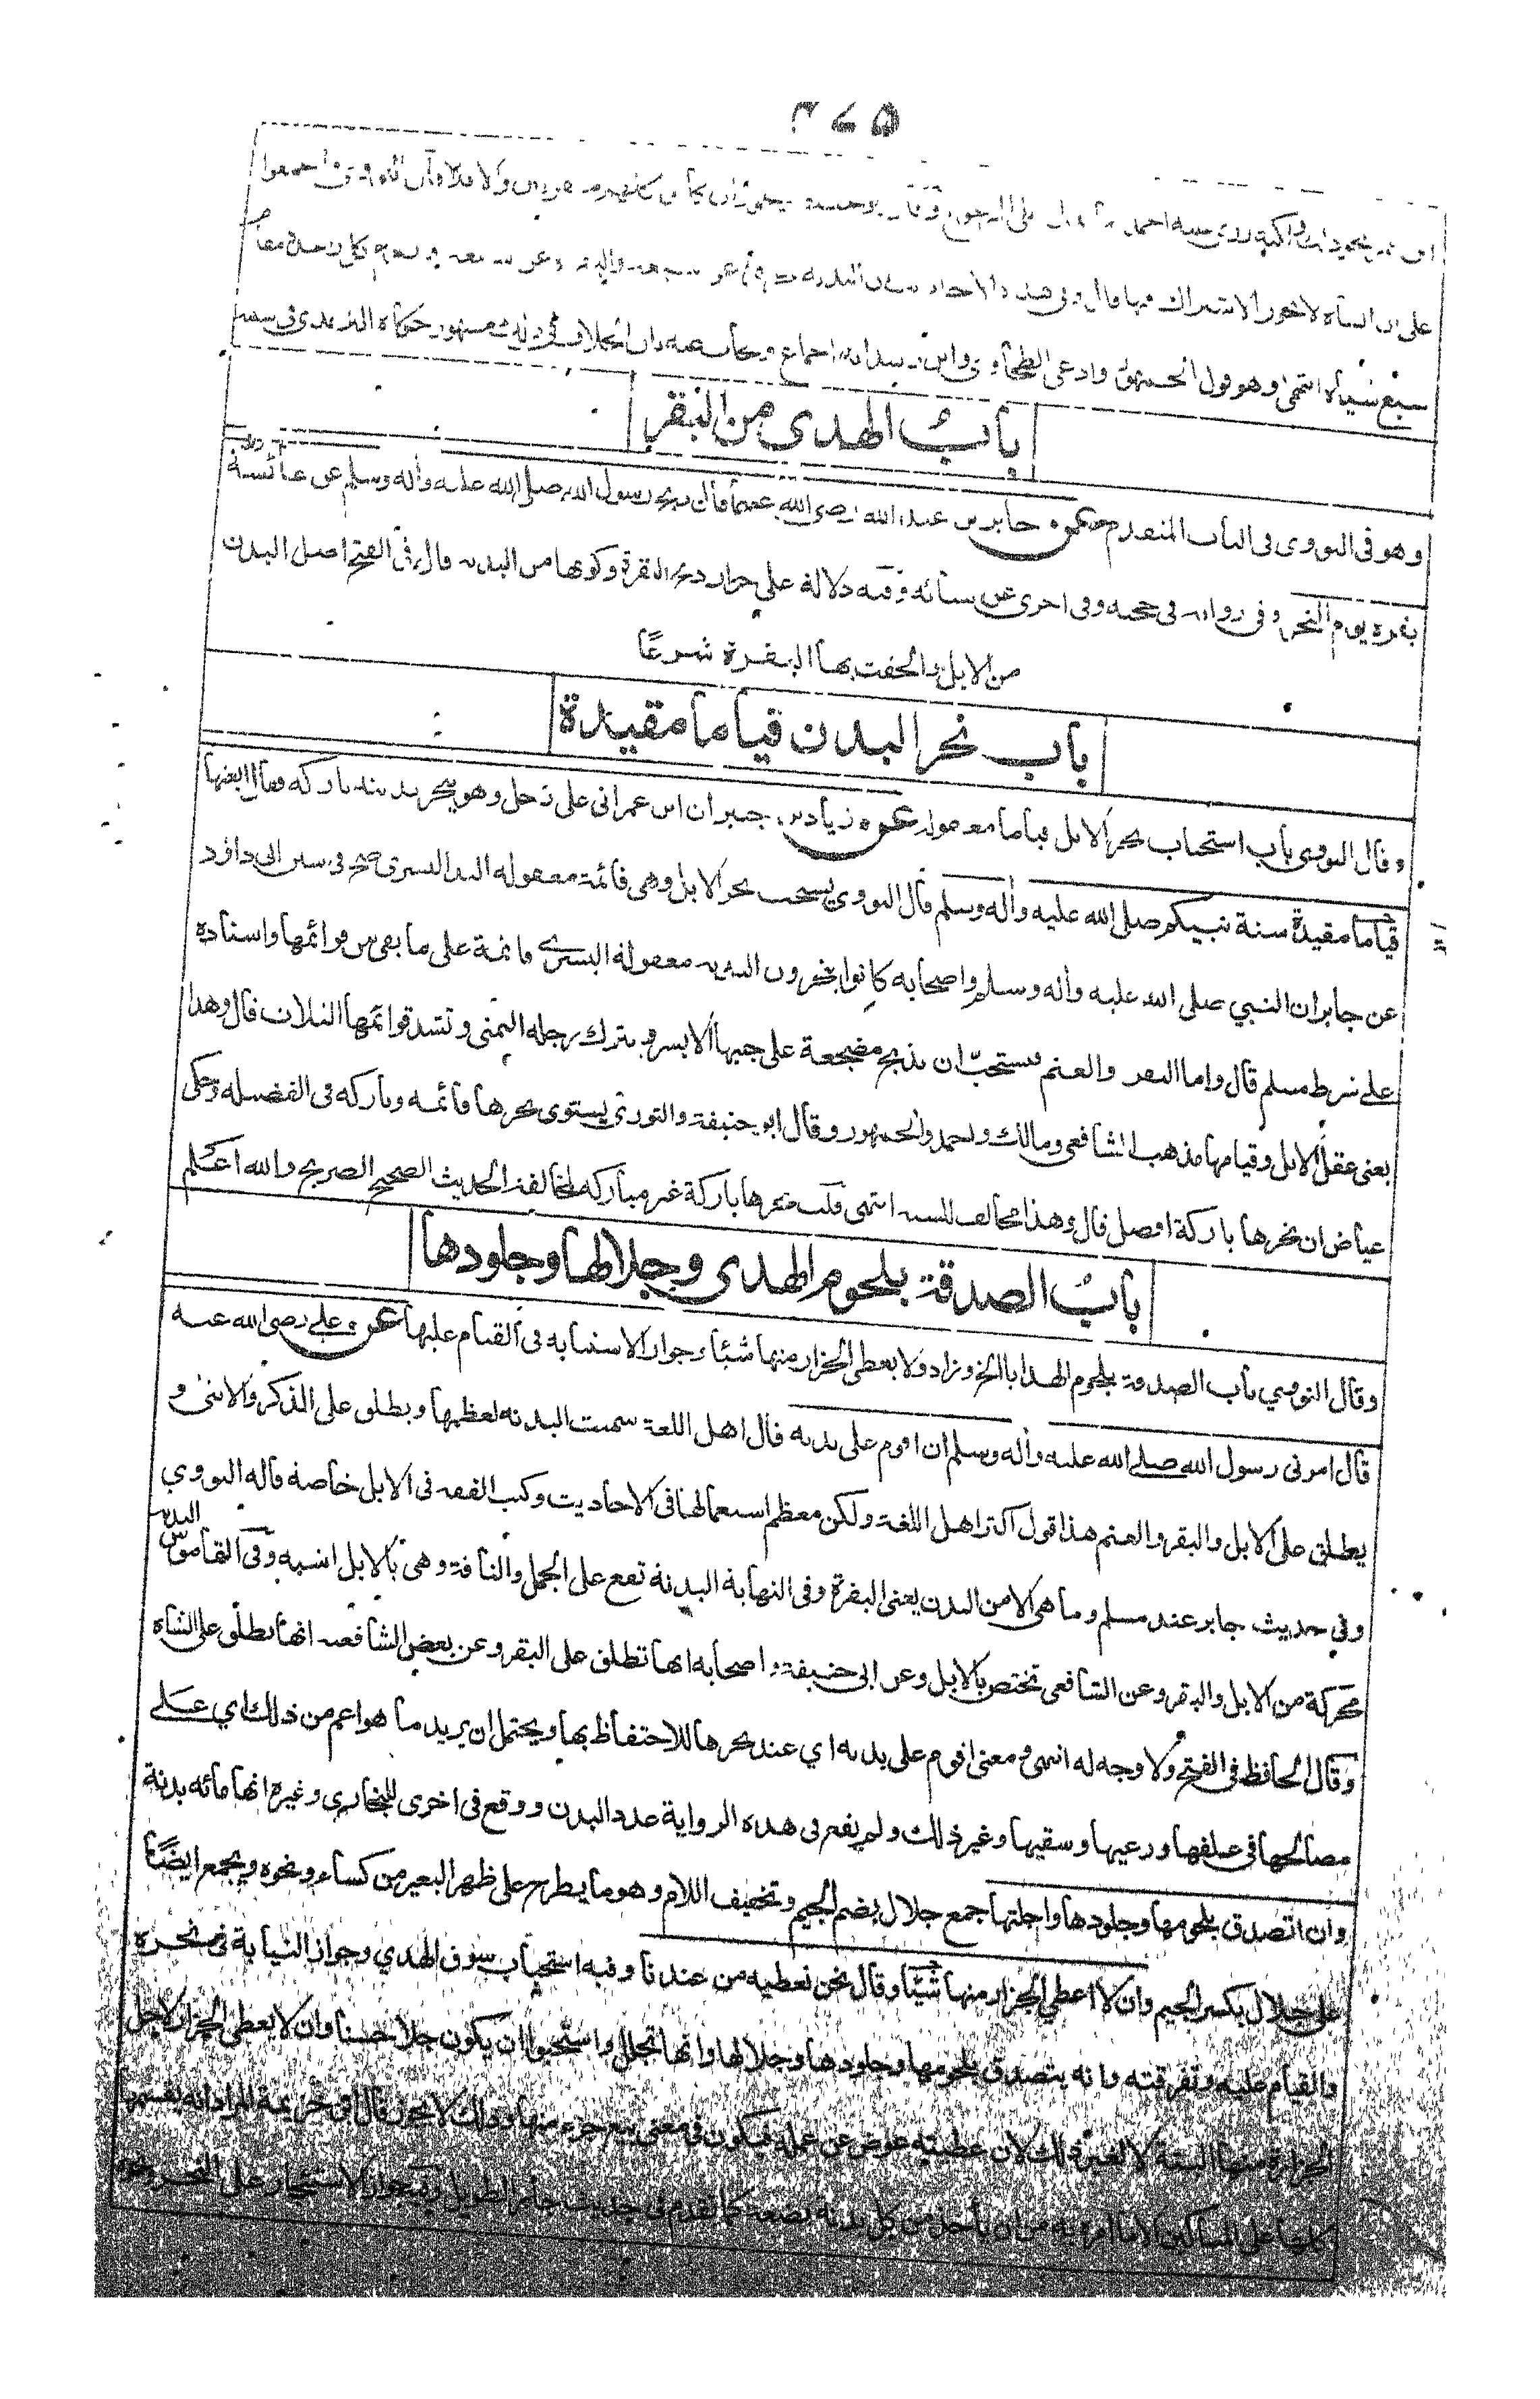 ٣٧٥
على ان الشاة لا يجوز الاشتراك فيها قال وفى هذه الاحاديث ان البدنة تجزى عن سبعة والبقرة عن سبعة وتقوم كل واحدة مقام
سبع شياه انتهى وهو قول الجمهور وادعى الطحاوى وابن رشد انه اجماع ويجاب عنه بان الخلاف فى ذلك مشهور حكاه الترمذى فى سننه
باب الهدى من البقر
وهو فى النووى فى الباب المتقدم عن جابر بن عبد الله رضى الله عنهما قال ذبح رسول الله صلى الله عليه واله وسلم عن عائشة
بقرة يوم النحر وفى رواية فى حجته وفى اخرى عن نسائه وفيه دلالة على جواز ذبح البقرة وكونها من البدن قال فى الفتح اصل البدن
من الابل والحقت بها البقرة شرعًا
باب نحر البدن قياما مقيدة
وقال النووى باب استحباب نحر الابل قياما معقولة عن زياد بن جبير ان ابن عمر اتى على رجل وهو ينحر بدنته باركة فقال ابعثها
قياما مقيدة سنة نبيكم صلى الله عليه واله وسلم قال النووى يستحب نحر الابل وهى قائمة معقولة اليد اليسرى صح فى سنن ابى داؤد
عن جابر ان النبي صلى الله عليه واله وسلم واصحابه كانوا ينحرون البدنة معقولة اليسرى قائمة على ما بقى من قوائمها واسناده
على شرط مسلم قال واما البقر والغنم فيستحبّ ان تذبح مضجعة على جنبها الايسر وتترك رجله اليمنى وتشد قوائمها الثلاث قال وهذا
يعنى عقل الابل وقيامها مذهب الشافعى ومالك واحمد والجمهور وقال ابو حنيفة والثورى يستوى نحرها قائمة وباركة فى الفضيلة وحكى
عياض ان نحرها باركة افضل قال وهذا مخالف للسنة انتهى قلت نحرها باركة غير مباركة لمخالفة الحديث الصحيح الصريح والله اعلم
باب الصدقة بلحوم الهدى وجلالها وجلودها
وقال النووي باب الصدقة بلحوم الهدايا الخ وزاد ولا يعطى الجزار منها شيئا وجواز الاستنابة فى القيام عليها عن على رضى الله عنه
قال امرنى رسول الله صلى الله عليه واله وسلم ان اقوم على بدنه قال اهل اللغة سميت البدنة لعظمها ويطلق على الذكر والانثى و
يطلق على الابل والبقر والغنم هذا قول اكثر اهل اللغة ولكن معظم استعمالها فى الاحاديث وكتب الفقه فى الابل خاصة قاله النووي
وفى حديث جابر عند مسلم وما هى الا من البدن يعنى البقرة وفى النهاية البدنة تقع على الجمل والناقة وهى بالابل اشبه وفى القاموس البدنة
محركة من الابل والبقر وعن الشافعى تختص بالابل وعن ابى حنيفة واصحابه انها تطلق على البقر وعن بعض الشافعية انها تطلق على الشاه
وقال الحافظ فى الفتح ولا وجه له انتهى ومعنى اقوم على بدنه اي عند نحرها للاحتفاظ بها ويحتمل ان يريد ما هو اعم من ذلك اي على
مصالحها فى علفها ورعيها وسقيها وغير ذلك ولم يقع فى هذه الرواية عدد البدن ووقع فى اخرى للبخارى وغيره انها مائه بدنة
وان اتصدق بلحومها وجلودها واجلتها جمع جلال بضم الجيم وتخفيف اللام وهو ما يطرح على ظهر البعير من كساء ونحوه ويجمع ايضًا
على جلال بكسر الجيم وان لا اعطي الجزار منها شيئًا وقال نحن نعطيه من عندنا وفيه استحباب سوق الهدي وجواز النيابة فى نحره
والقيام عليه وتفرقته وانه يتصدق بلحومها وجلودها وجلالها وانها تجلل واستحبوا ان يكون جلا حسنا وان لا يعطى الجزار لاجل
الجزارة منها البتة لا لغير ذلك لان عطيته عوض عن عمله فيكون فى معنى بيع جزء منها وذلك لا يجوز قال ابن خزيمة المراد انه يقسمها
كلها على المساكين الا ما امر به من ان يأخذ من كل بدنة بضعة كما تقدم فى حديث جابر الطويل وفيه جواز الاستئجار على النحر